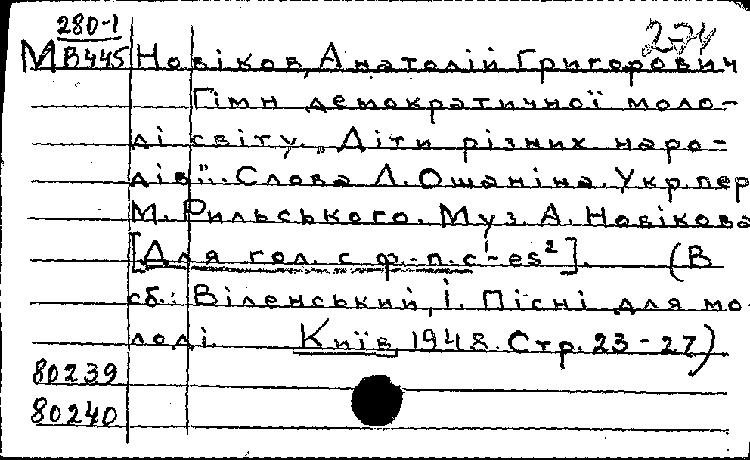 280-1
274
М В445 Новіков, Анатолій Григорович
Гімн демократичної моло-
ді світу. „Діти різних наро-
дів". Слова Л. Ошаніна. Укр. пер.
М. Рильського. Муз. А. Новікова
[Для гол. с ф.-п. c¹-es²]. (В
сб.: Віленський, І. Пісні для мо
лоді. Київ 1948. Стр. 23-27)
80239
80240